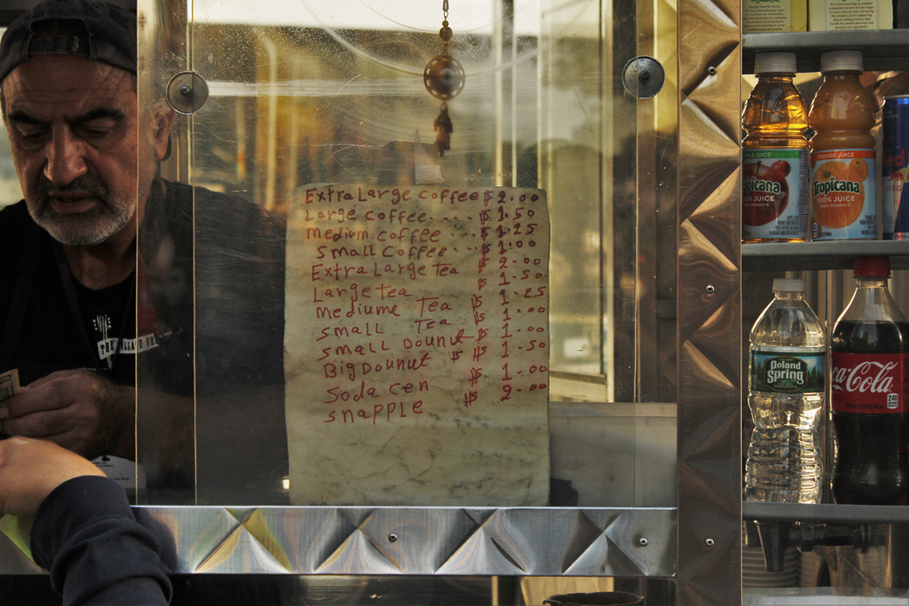 Extra Large coffee $ 2.00
Large coffee.... $ 1.50
medium coffee... $ 1.25
small coffee... $ 1.00
Extra Large Tea $ 2.00
Large tea $ 1.50
mediume Tea $ 1.25
small Tea $ 1.00
small Dounut $ 1.00
Big Dounut $ 1.50
Soda cen $ 1.00
snapple $ 2.00
Tropicana
100% JUICE
ORANGE JUICE
Tropicana
100% JUICE
Poland
Spring
Coca-Cola